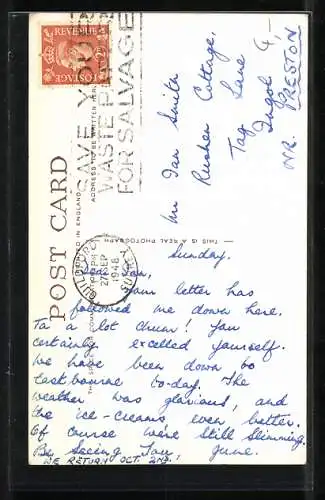 POST CARD
PRINTED IN ENGLAND
ADDRESS TO BE WRITTEN HERE
THIS IS A REAL PHOTOGRAPH
POSTAGE
REVENUE
SAVE YOUR
WASTE PAPER
FOR SALVAGE
GUILDFORD
27 SEP
1948
SURREY
Mr Ian Smith
Rushen Cottage,
Tag Lane
Ingol
NR. PRESTON
Sunday.
Dear Ian,
Your letter has
followed me down here.
Ta a lot chum! You
certainly excelled yourself.
We have been down to
Eastbourne to-day. The
weather was glorious, and
the ice-creams even better.
Of course we're still slimming.
Be Seeing You, June.
WE RETURN OCT. 2ND.